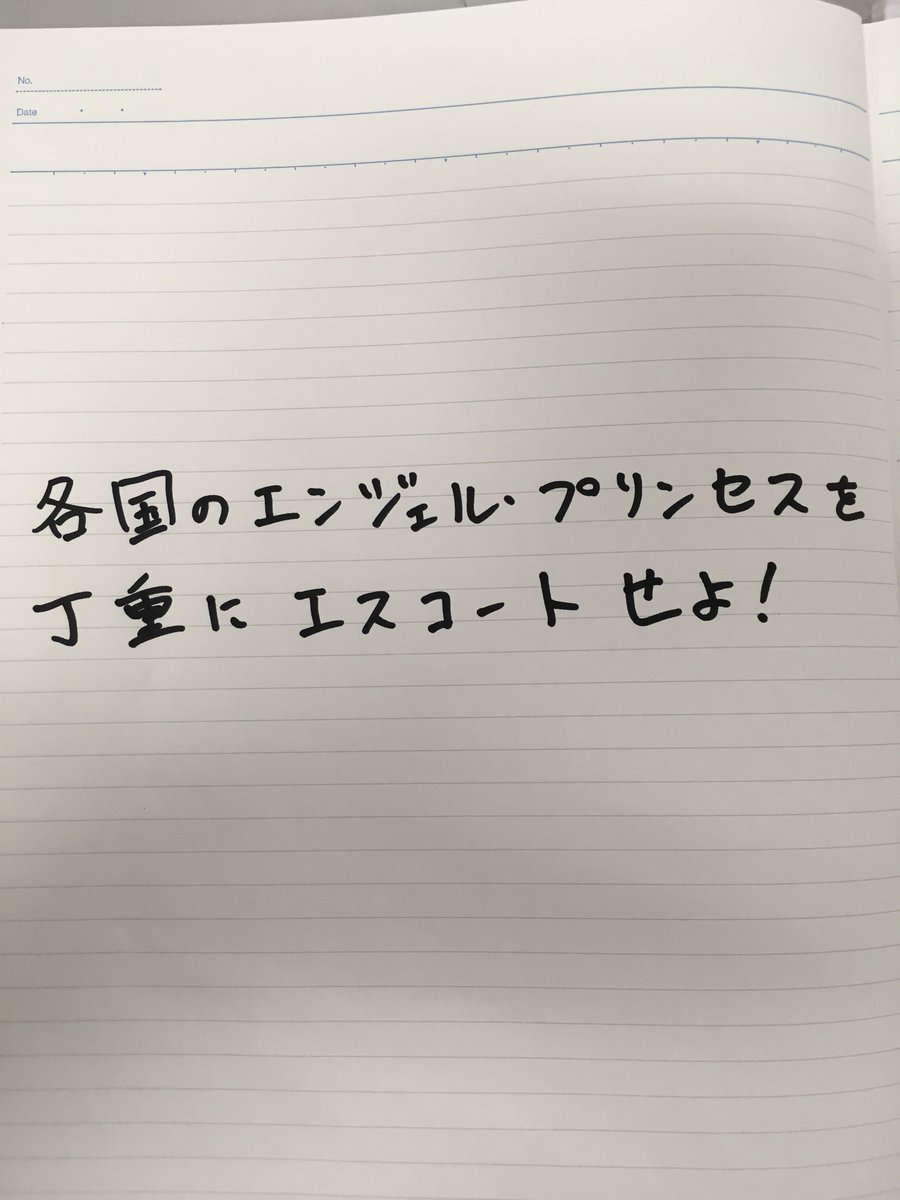 No.
Date
各国のエンジェル・プリンセスを
丁重に エスコート せよ!